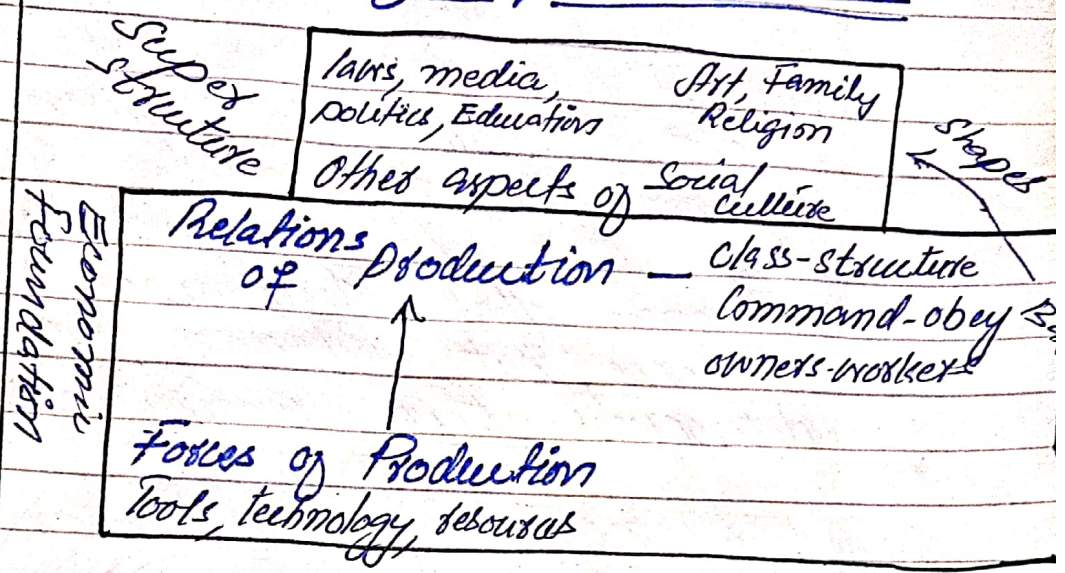 Super
structure
laws, media, Art, Family
politics, Education Religion
Other aspects of Social
culture
Shapes
Economic
foundation
Relations
of Production — Class-structure
Command-obey
owners-workers
Forces of Production
Tools, technology, resources